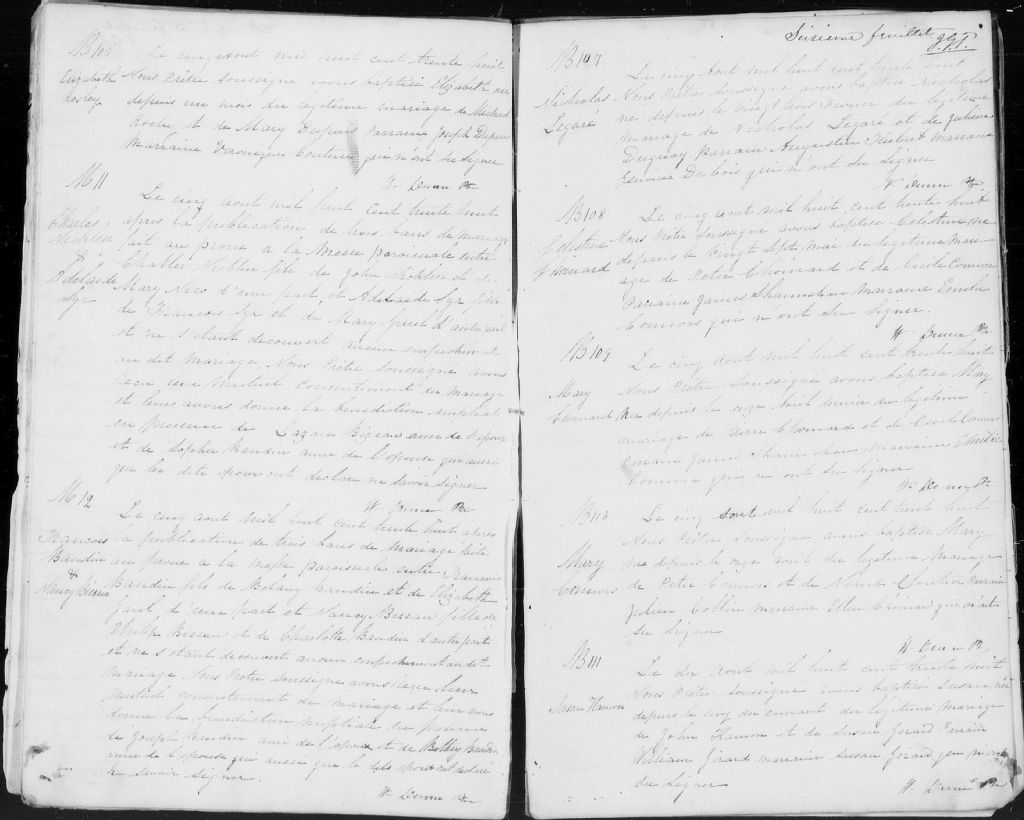 Le cinq aout mil huit cent trente huit
Elizabeth Nous Prêtre soussigné avons baptisé Elizabeth née
depuis un mois du légitime mariage de Michael
et de Mary Dupuis Parrain Joseph Dupuis
Marraine Veronique Couture qui n'ont su signer
W Dunn Ptre
M 11
Le cinq aout mil huit cent trente huit
Charles après la publication de trois bans de mariage
fait au prone a la Messe paroissiale entre
Charles fils de John et de
Adelaide Mary d'une part, et Adelaide Syr fille
Syr de Francois Syr et de Mary d'autre part
et ne s'etant decouvert aucun empechement
au dit mariage, Nous Prêtre Soussigné avons
recu leur mutuel consentement de mariage
et leurs avons donné la benediction nuptiale
en presence de Lazare ami de l'epoux
et de Sophie Baudin amie de l'epouse qui aussi
que les dits epoux ont declaré ne savoir signer
W Dunn Ptre
M 12
Le cinq aout mil huit cent trente huit apres
Francois la publication de trois bans de mariage faite
Baudin au prone a la Messe paroissiale entre Francois
& Nancy Baudin fils de Baudin et de Elizabeth
d'une part, et Nancy Bisson fille de
Philip Bisson et de Charlotte Baudin d'autre part
et ne s'etant decouvert aucun empechement au dit
mariage. Nous Prêtre Soussigné avons recu leur
mutuel consentement de mariage et leur avons
donné la benediction nuptiale en presence
de Joseph Baudin ami de l'epoux et de Baudin
amie de l'epouse qui aussi que les dits epoux ont declaré
ne savoir signer.
W Dunn Ptre
Sixieme feuillet
B 107
Le cinq Aout mil huit cent trente huit
Nicholas Nous Prêtre soussigné avons baptisé Nicholas
Legaré né depuis le vingt trois Fevrier du légitime
mariage de Nicholas Legaré et de Julienne
Duguay Parrain Augustin Hebert marraine
Dubois qui n'ont su signer
W Dunn Ptre
B 108
Le cinq aout mil huit cent trente huit
Celestine Nous Prêtre Soussigné avons baptisé Celestine née
Choinard depuis le vingt Sept Mai du légitime mari-
age de Peter Choinard et de Cecile Connors
Parrain James Shannahan Marraine Emelie
Connors qui n'ont su signer.
W Dunn Ptre
B 109
Le cinq aout mil huit cent trente huit
Mary Nous Prêtre Soussigné avons baptisé Mary
Chouinard née depuis le onze Avril dernier du légitime
mariage de Pierre Chouinard et de Cecile Connors
Parrain James Shannahan Marraine Emilie
Connors qui n'ont su signer
W Dunn Ptre
B 110
Le cinq aout mil huit cent trente huit
Nous Prêtre Soussigné avons baptisé Mary
Mary née depuis le onze aout du légitime mariage
Connors de Peter Connors et de Parrain
Julien Collin marraine Ellen Choinard qui n'ont
su signer
W Dunn Ptre
B 111
Le dix aout mil huit cent trente huit
Nous Prêtre Soussigné avons baptisé Susan, née
Susan Hamon depuis le cinq du courant du légitime mariage
de John Hamon et de Susan Girard Parrain
William Girard marraine Susan Girard qui n'ont
su signer
W Dunn Ptre